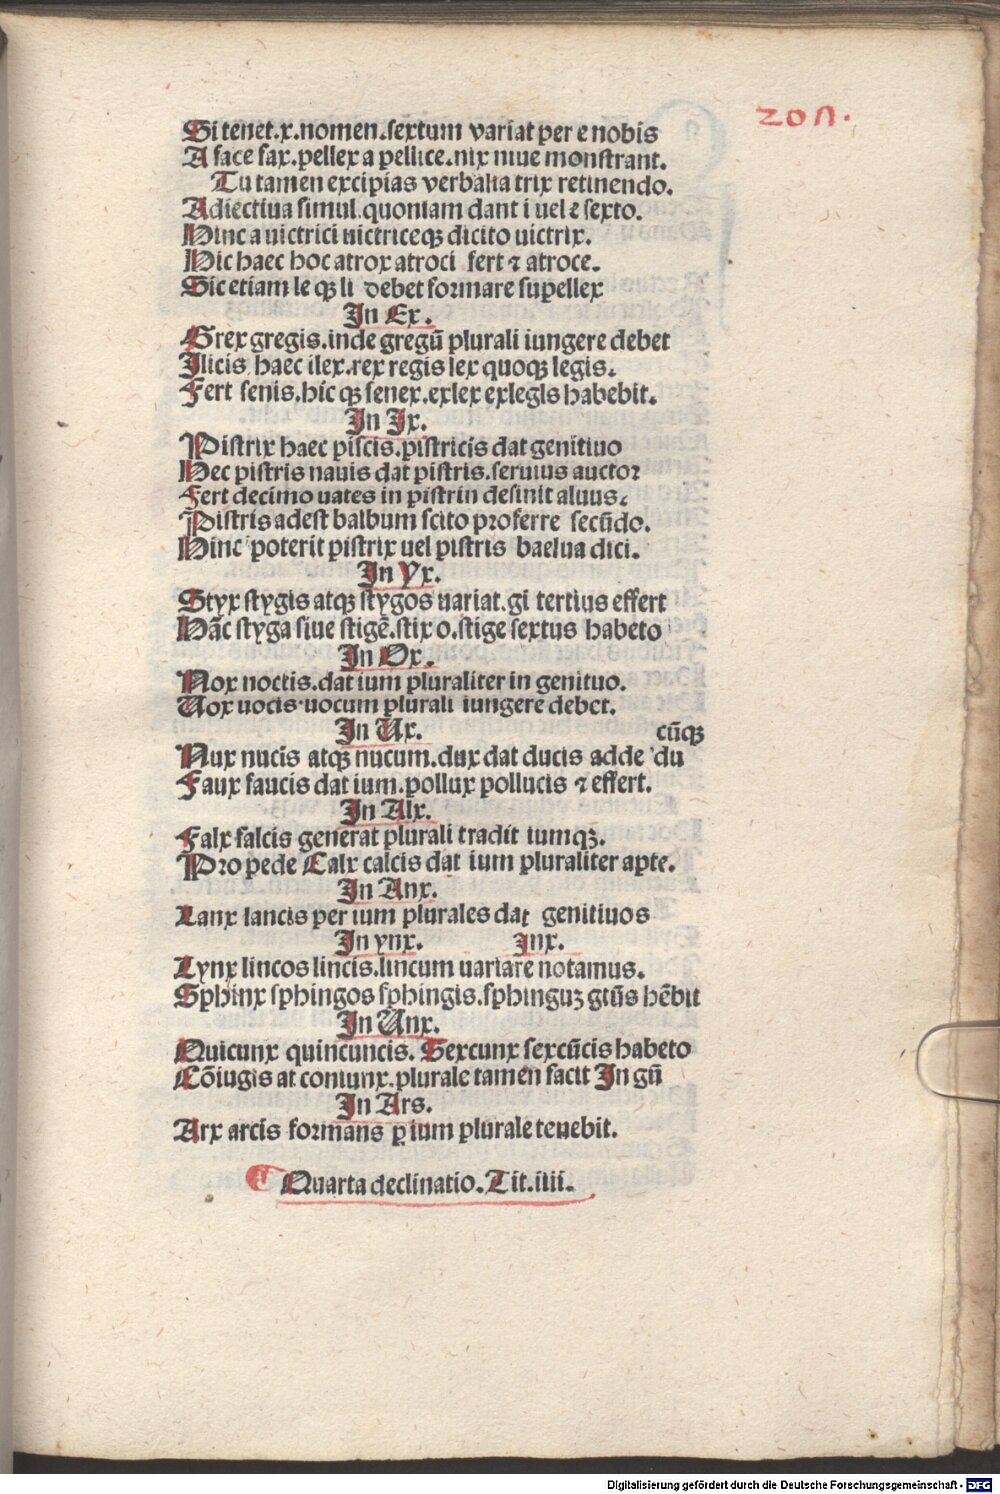 207.
Si tenet.x.nomen.sextum variat per e nobis
A face fax.pellex a pellice.nix niue monstrant.
Tu tamen excipias verbalia trix retinendo.
Adiectiua simul.quoniam dant i uel ⁊ sexto.
Hinc a uictrici uictriceqꝫ dicito uictrix.
Hic haec hoc atrox atroci fert ⁊ atroce.
Sic etiam le qꝫ li debet formare supellex
In Ex.
Grex gregis.inde gregū plurali iungere debet
Ilicis haec ilex.rex regis lex quoqꝫ legis.
Fert senis.hic qꝫ senex.exlex exlegis habebit.
In Ix.
Pistrix haec piscis.pistricis dat genitiuo
Hec pistris nauis dat pistris.seruius auctor
Fert decimo uates in pistrin desinit aluus.
Pistris adest balbum scito proferre secūdo.
Hinc poterit pistrix uel pistris baelua dici.
In Yx.
Styx stygis atqꝫ stygos uariat.gi tertius effert
Hāc styga siue stigē.stix o.stige sextus habeto
In Ox.
Nox noctis.dat ium pluraliter in genituo.
Uox uocis.uocum plurali iungere debet.
In Ux.
cūqꝫ
Nux nucis atqꝫ nucum.dux dat ducis adde du
Faux faucis dat ium.pollux pollucis ⁊ effert.
In Alx.
Falx falcis generat plurali tradit iumqꝫ.
Pro pede Calx calcis dat ium pluraliter apte.
In Anx.
Lanx lancis per ium plurales dat genitiuos
In ynx. inx.
Lynx lincos lincis.lincum uariare notamus.
Sphinx sphingos sphingis.sphinguꝫ gtūs hēbit
In Unx.
Quicunx quincuncis. Sexcunx sexcūcis habeto
Cōiugis at coniunx.plurale tamen facit In gū
In Ars.
Arx arcis formans ꝑ ium plurale tenebit.
Quarta declinatio.Tit.iiii.
Digitalisierung gefördert durch die Deutsche Forschungsgemeinschaft - DFG